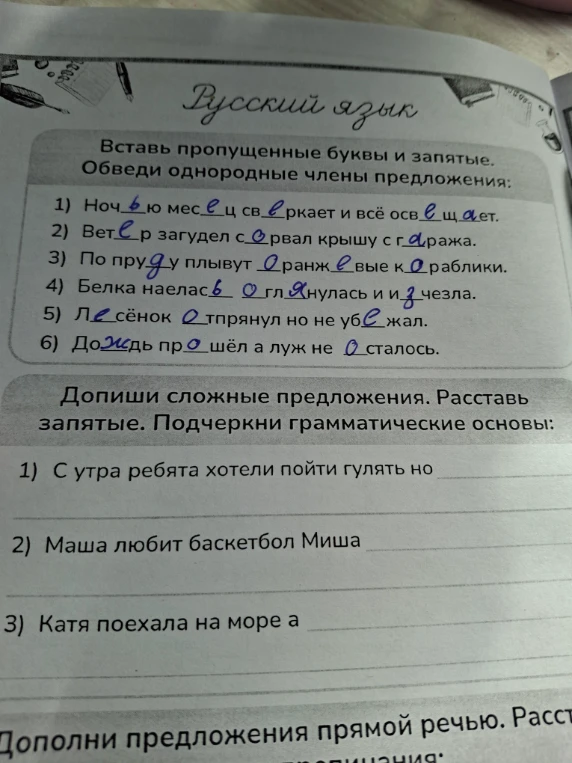 Русский язык
Вставь пропущенные буквы и запятые.
Обведи однородные члены предложения:
1) Ночью месец сверкает и всё освещает.
2) Ветер загудел сорвал крышу с гаража.
3) По пруду плывут оранжевые кораблики.
4) Белка наелась оглянулась и изчезла.
5) Лесёнок отпрянул но не убежал.
6) Дождь прошёл а луж не осталось.
Допиши сложные предложения. Расставь
запятые. Подчеркни грамматические основы:
1) С утра ребята хотели пойти гулять но
2) Маша любит баскетбол Миша
3) Катя поехала на море а
Дополни предложения прямой речью.